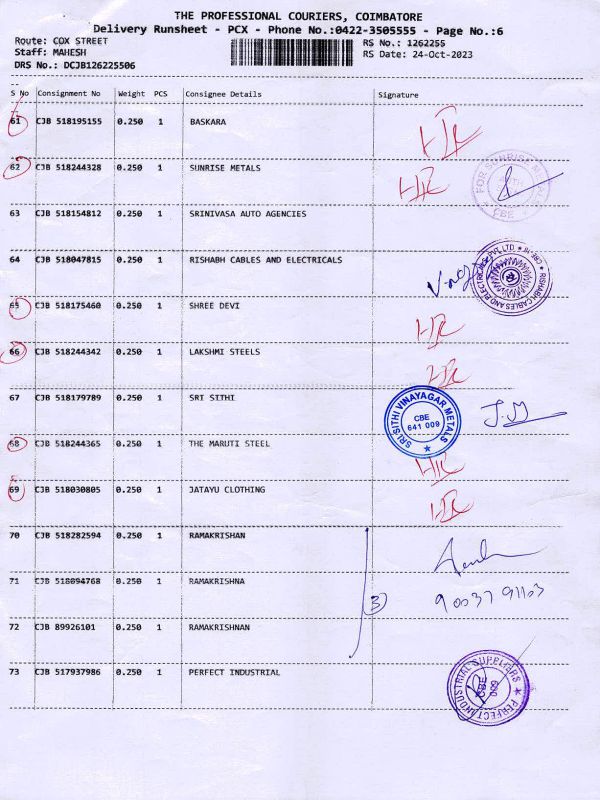 THE PROFESSIONAL COURIERS, COIMBATORE
Delivery Runsheet - PCX - Phone No.:0422-3505555 - Page No.:6
Route: COX STREET RS No.: 1262255
Staff: MAHESH RS Date: 24-Oct-2023
DRS No.: DCJB126225506
S No Consignment No Weight PCS Consignee Details Signature
61 CJB 518195155 0.250 1 BASKARA
62 CJB 518244328 0.250 1 SUNRISE METALS
FOR SUNRISE METALS CBE
63 CJB 518154812 0.250 1 SRINIVASA AUTO AGENCIES
64 CJB 518047815 0.250 1 RISHABH CABLES AND ELECTRICALS
RISHABH CABLES AND ELECTRICALS PVT LTD
65 CJB 518175460 0.250 1 SHREE DEVI
66 CJB 518244342 0.250 1 LAKSHMI STEELS
67 CJB 518179789 0.250 1 SRI SITHI
SRI SITHI VINAYAGAR METALS
CBE
641 009
J.M
68 CJB 518244365 0.250 1 THE MARUTI STEEL
69 CJB 518030805 0.250 1 JATAYU CLOTHING
70 CJB 518282594 0.250 1 RAMAKRISHAN
71 CJB 518094768 0.250 1 RAMAKRISHNA
3) 9003791103
72 CJB 89926101 0.250 1 RAMAKRISHNAN
73 CJB 517937986 1 0.250 PERFECT INDUSTRIAL
PERFECT INDUSTRIAL SUPPLIERS
CBE
009